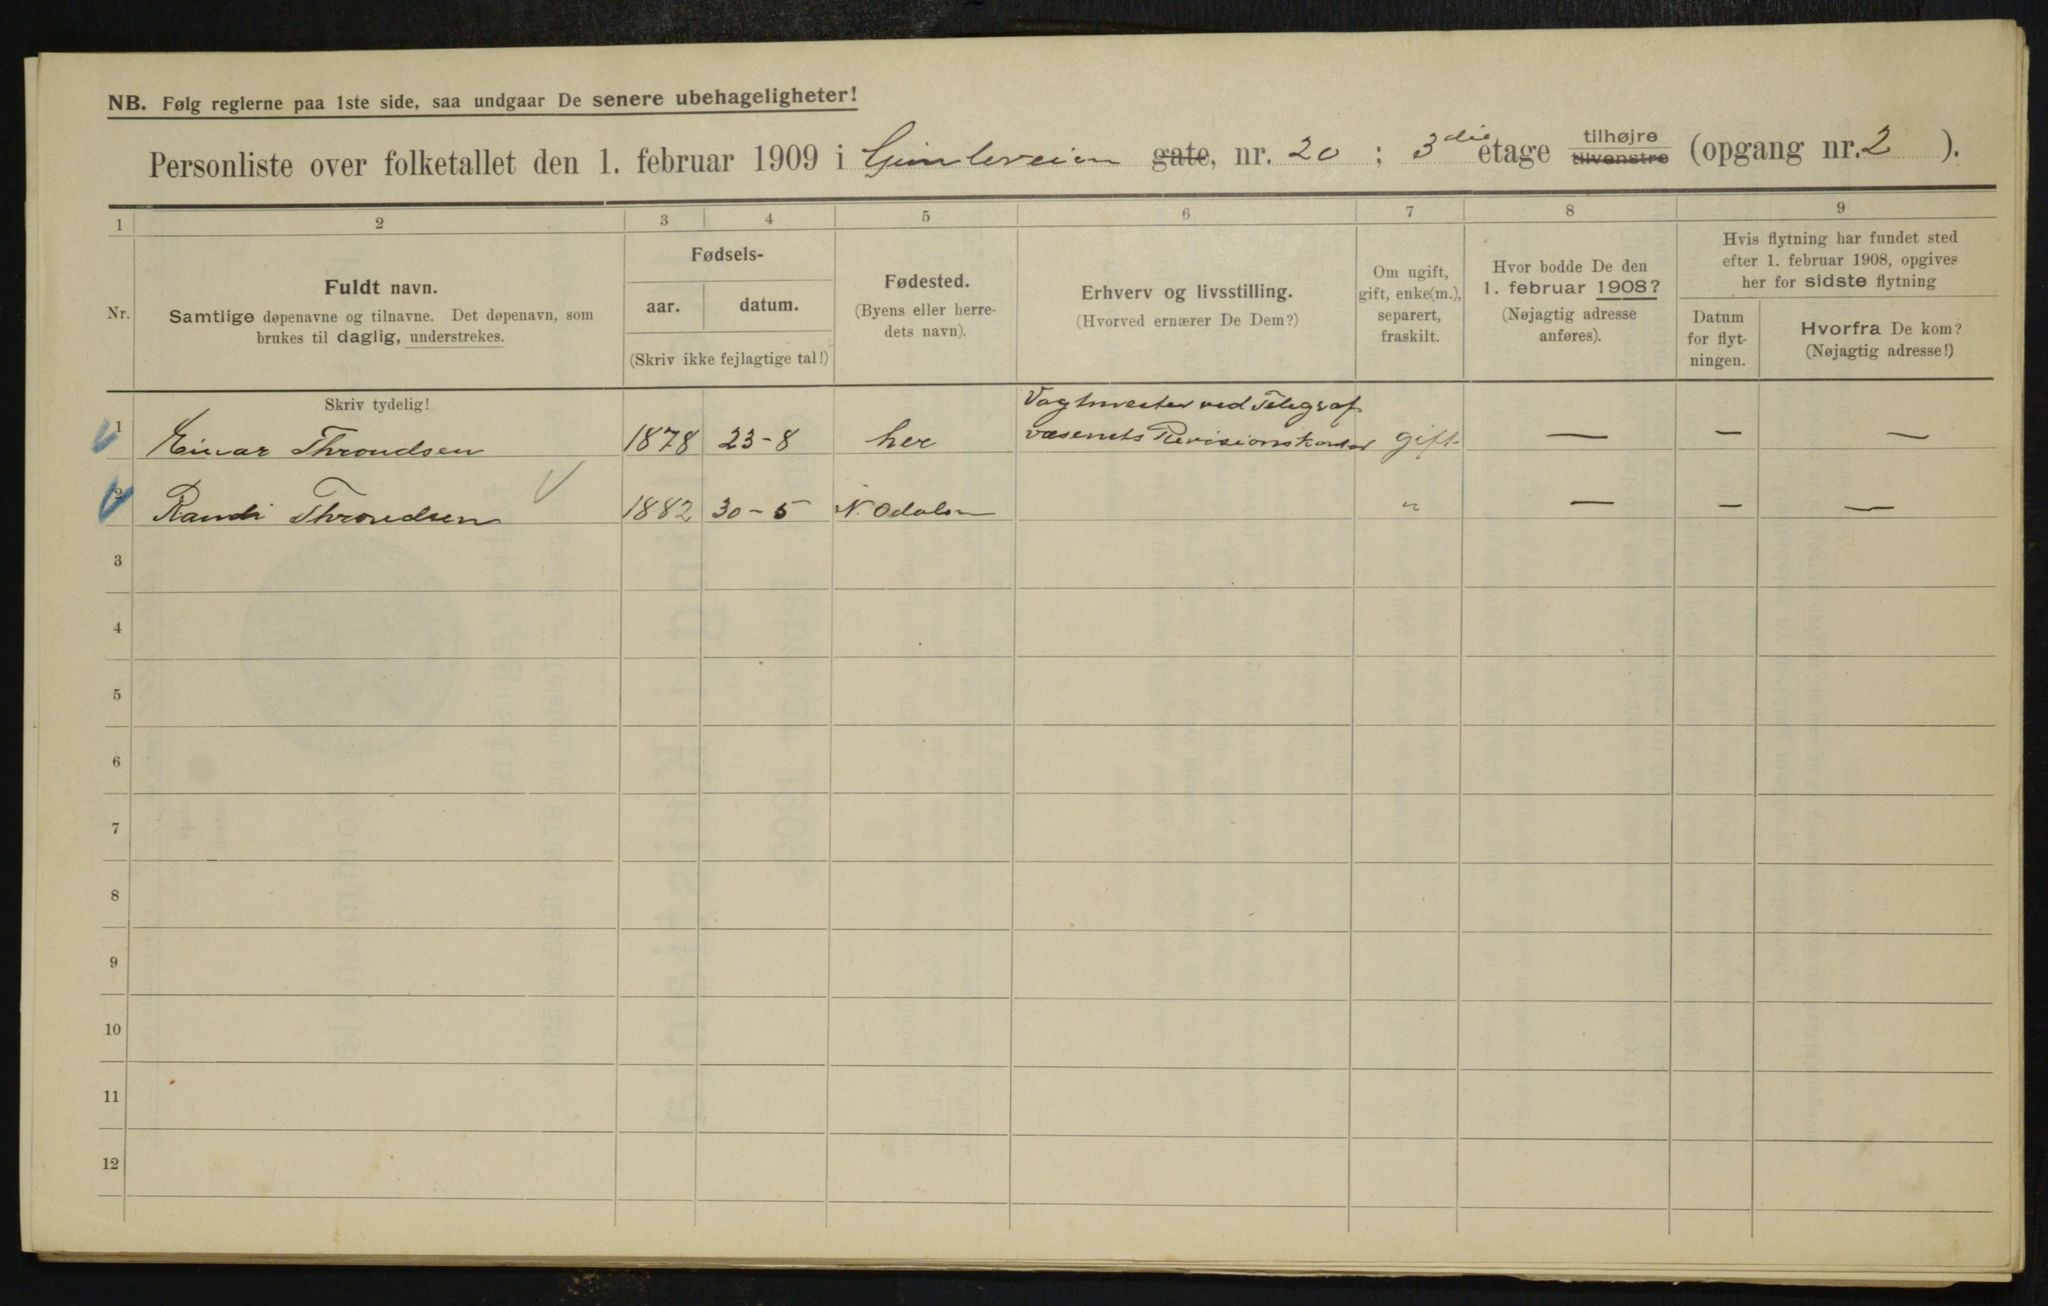 NB. Følg reglerne paa 1ste side, saa undgaar De senere ubehageligheter!
Personliste over folketallet den 1. februar 1909 i Gimleveien gate, nr. 20 ; 3die etage tilhøjre tilvenstre (opgang nr. 2 ).
1 2 3 4 5 6 7 8 9
Nr.
Fuldt navn.
Samtlige døpenavne og tilnavne. Det døpenavn, som
brukes til daglig, understrekes.
Fødsels-
aar. datum.
(Skriv ikke fejlagtige tal!)
Fødested.
(Byens eller herre-
dets navn).
Erhverv og livsstilling.
(Hvorved ernærer De Dem?)
Om ugift,
gift, enke(m.),
separert,
fraskilt.
Hvor bodde De den
1. februar 1908?
(Nøjagtig adresse
anføres).
Hvis flytning har fundet sted
efter 1. februar 1908, opgives
her for sidste flytning
Datum
for flyt-
ningen.
Hvorfra De kom?
(Nøjagtig adresse!)
Skriv tydelig!
Vagtmester ved Telegraf-
1 Einar Throndsen 1878 23-8 her væsenets Revisionskontor gift — — —
2 Randi Throndsen 1882 30-5 N. Odalen " — — —
3
4
5
6
7
8
9
10
11
12